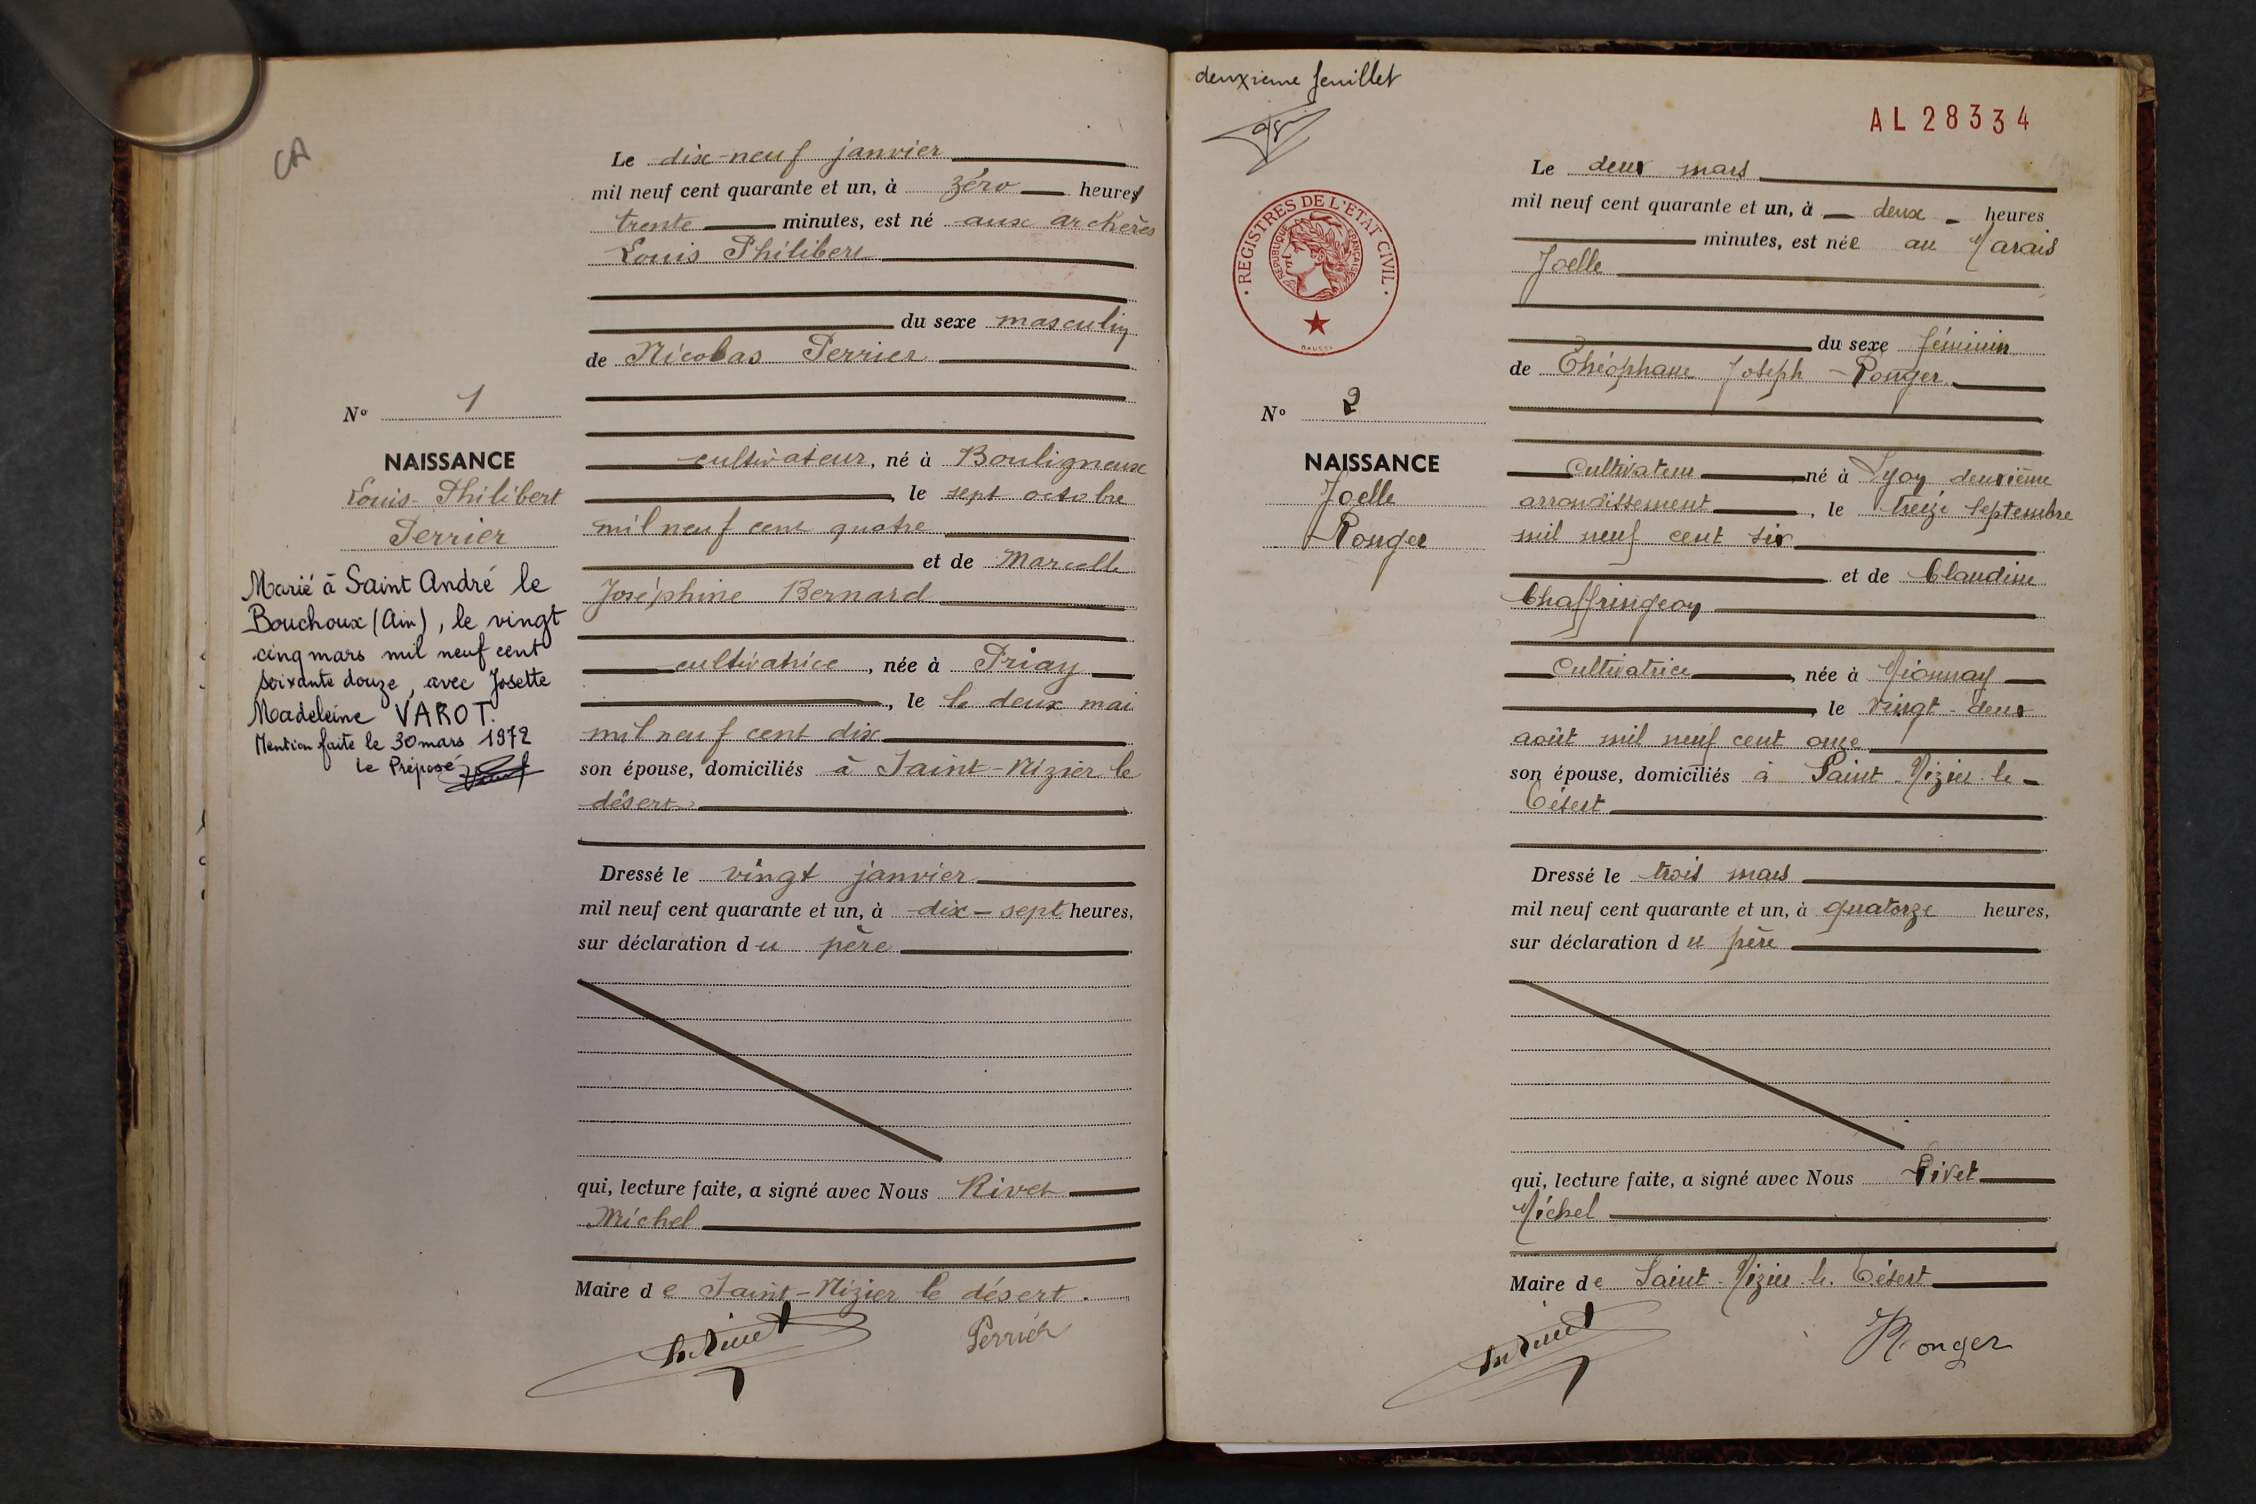 CA
Le dix-neuf janvier
mil neuf cent quarante et un, à zéro heures
trente minutes, est né aux archères
Louis Philibert
du sexe masculin
de Nicolas Perrier
cultivateur, né à Bouligneux
, le sept octobre
mil neuf cent quatre
et de Marcelle
Joséphine Bernard
cultivatrice, née à Priay
, le le deux mai
mil neuf cent dix
son épouse, domiciliés à Saint-Nizier le
désert
Dressé le vingt janvier
mil neuf cent quarante et un, à dix-sept heures,
sur déclaration du père
qui, lecture faite, a signé avec Nous Rivet
Michel
Maire de Saint-Nizier le désert.
Perrier
N° 1
NAISSANCE
Louis-Philibert
Perrier
Marié à Saint André le
Bouchoux (Ain), le vingt
cinq mars mil neuf cent
soixante douze, avec Josette
Madeleine VAROT.
Mention faite le 30 mars 1972
Le Préposé
deuxième feuillet
AL 28334
REGISTRES DE L'ETAT CIVIL
REPUBLIQUE FRANÇAISE
N° 2
NAISSANCE
Joelle
Ronger
Le deux mars
mil neuf cent quarante et un, à deux heures
minutes, est née au Marais
Joelle
du sexe féminin
de Théophane Joseph Ronger
cultivateur né à Lyon deuxième
arrondissement, le treize septembre
mil neuf cent six
et de Claudine
Chaffringeon
Cultivatrice, née à Mionnay
, le vingt-deux
août mil neuf cent onze
son épouse, domiciliés à Saint-Nizier-le-
Désert
Dressé le trois mars
mil neuf cent quarante et un, à quatorze heures,
sur déclaration du père
qui, lecture faite, a signé avec Nous Rivet
Michel
Maire de Saint-Nizier-le-Désert
Ronger